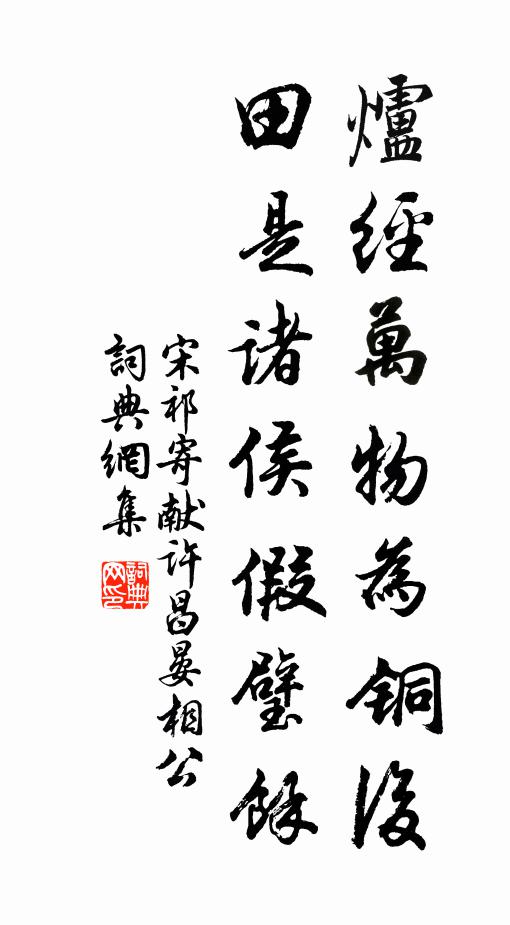 爐經萬物為銅後
田是諸侯假璧餘
宋祁寄献许昌晏相公
詞典網集
詞典网印